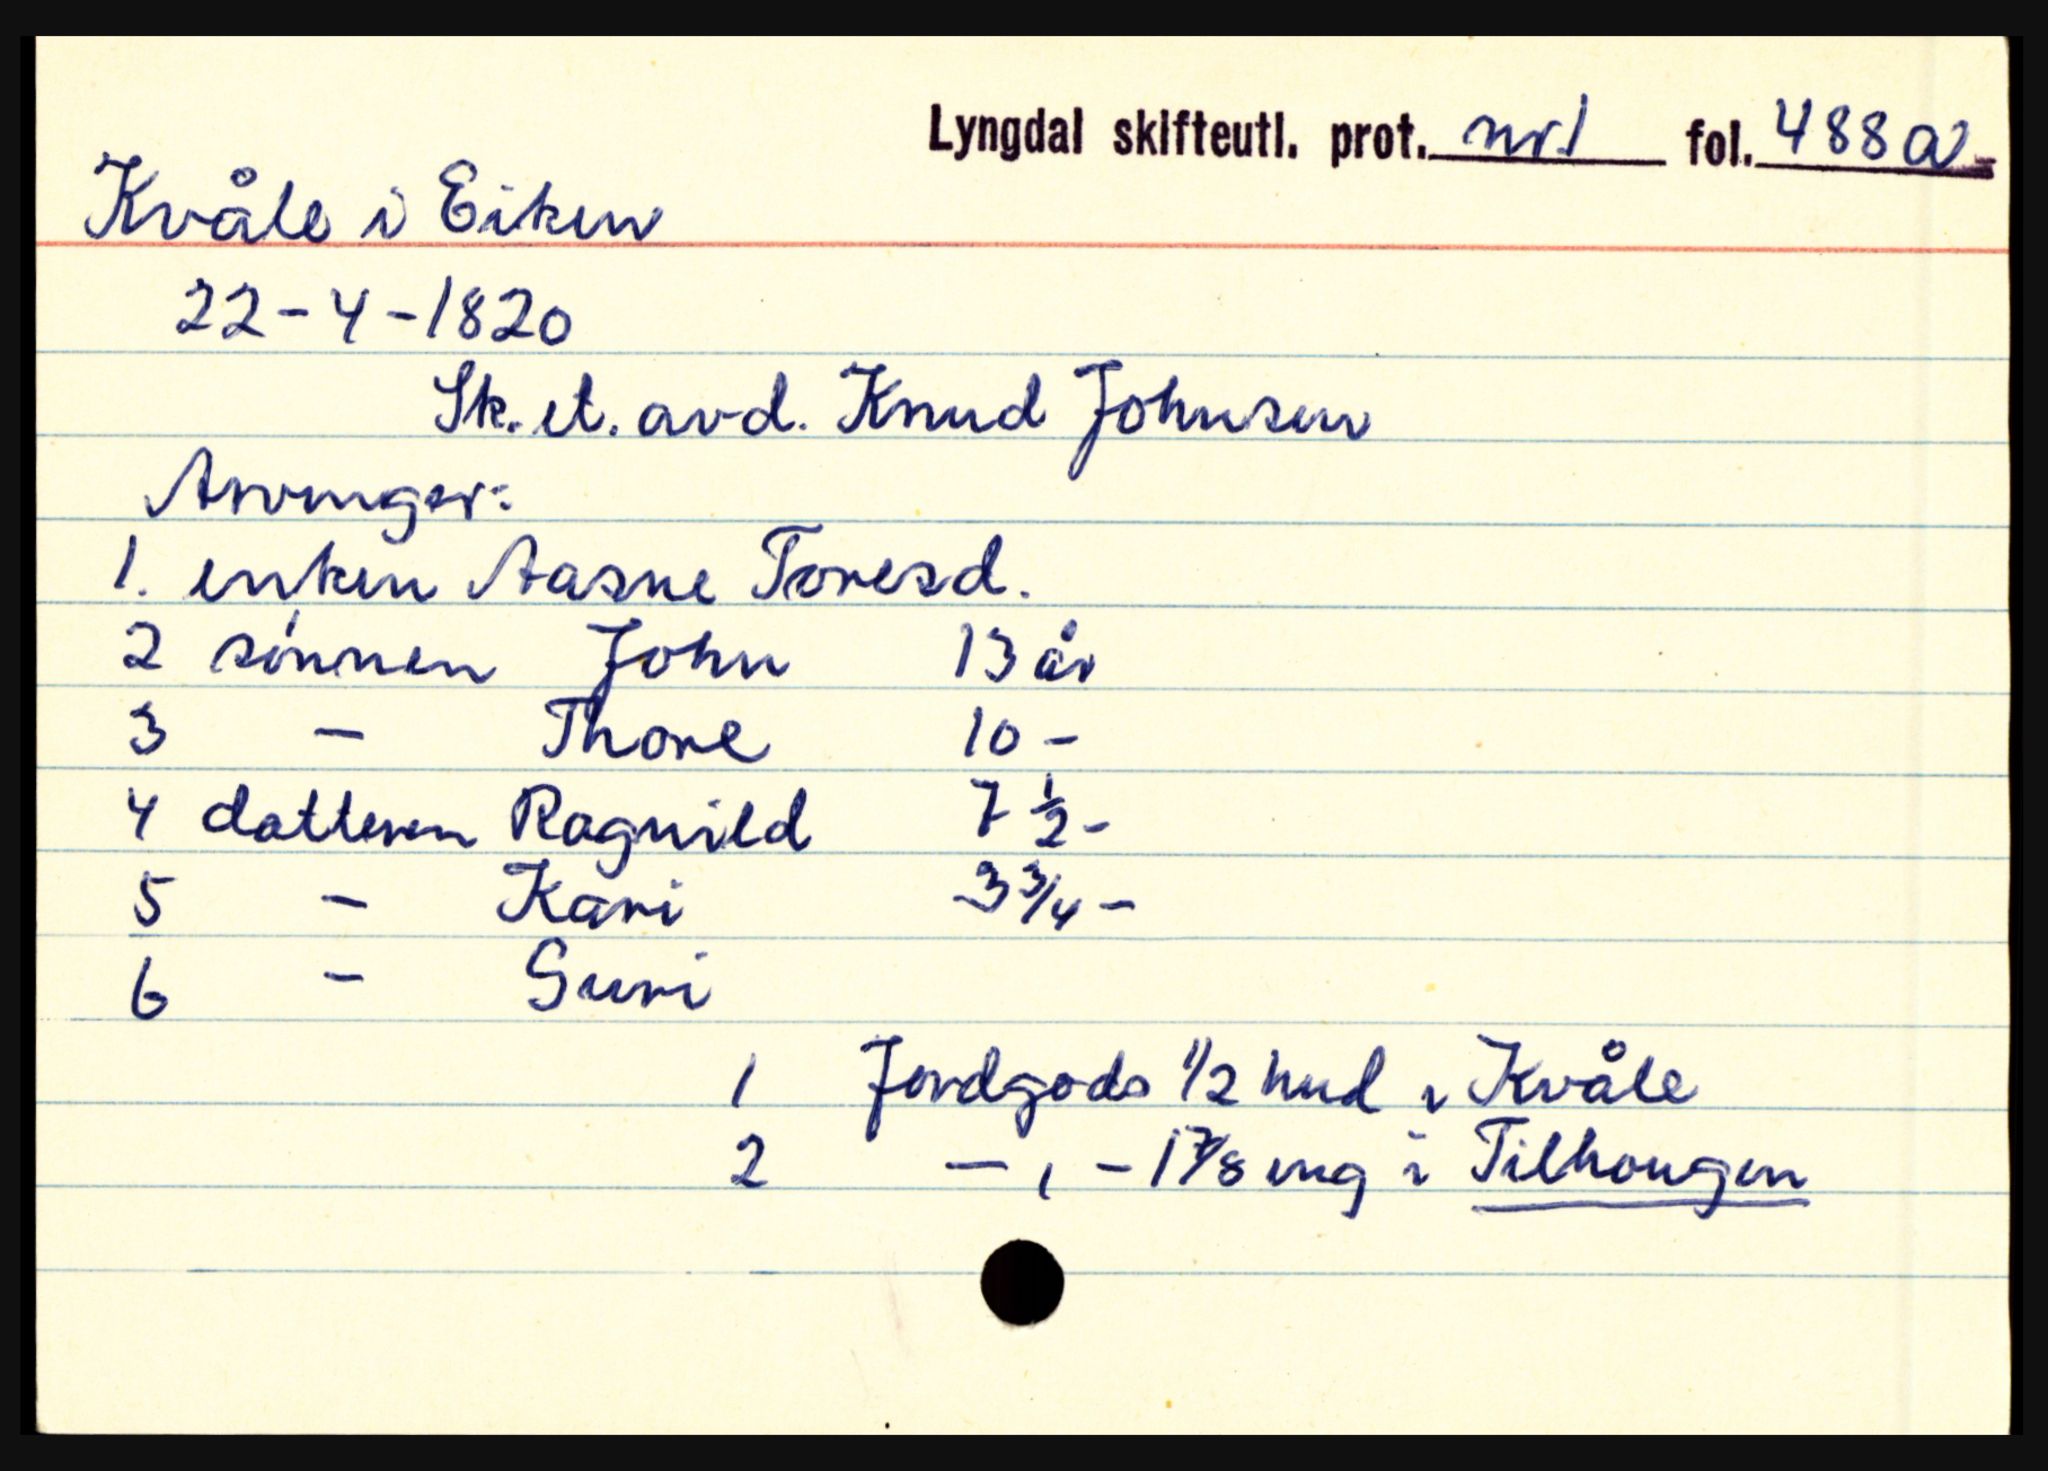 Lyngdal skifteutl. prot. nr 1 fol. 488a
Kvåle i Eiken
22-4-1820
Sk. et. avd. Knud Johnsen
Arvinger:
1. enken Aasne Toresd.
2 sónnen John 13 år
3 - Thore 10 -
4 datteren Ragnild 7 1/2 -
5 - Kari 3 3/4 -
6 - Guri
1 Jordgods 1/2 hud i Kvåle
2 - , - 1 7/8 mg i Tilhougen